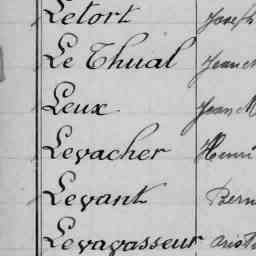 Letort Joseph
Le Thual Jean
Leux Jean M
Levacher Henri
Levant Bern
Levavasseur Arist